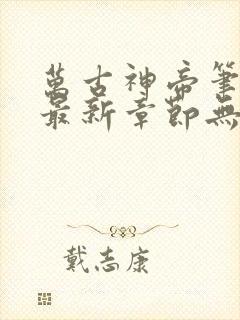 萬古神帝筆
最新章節無
戴志康